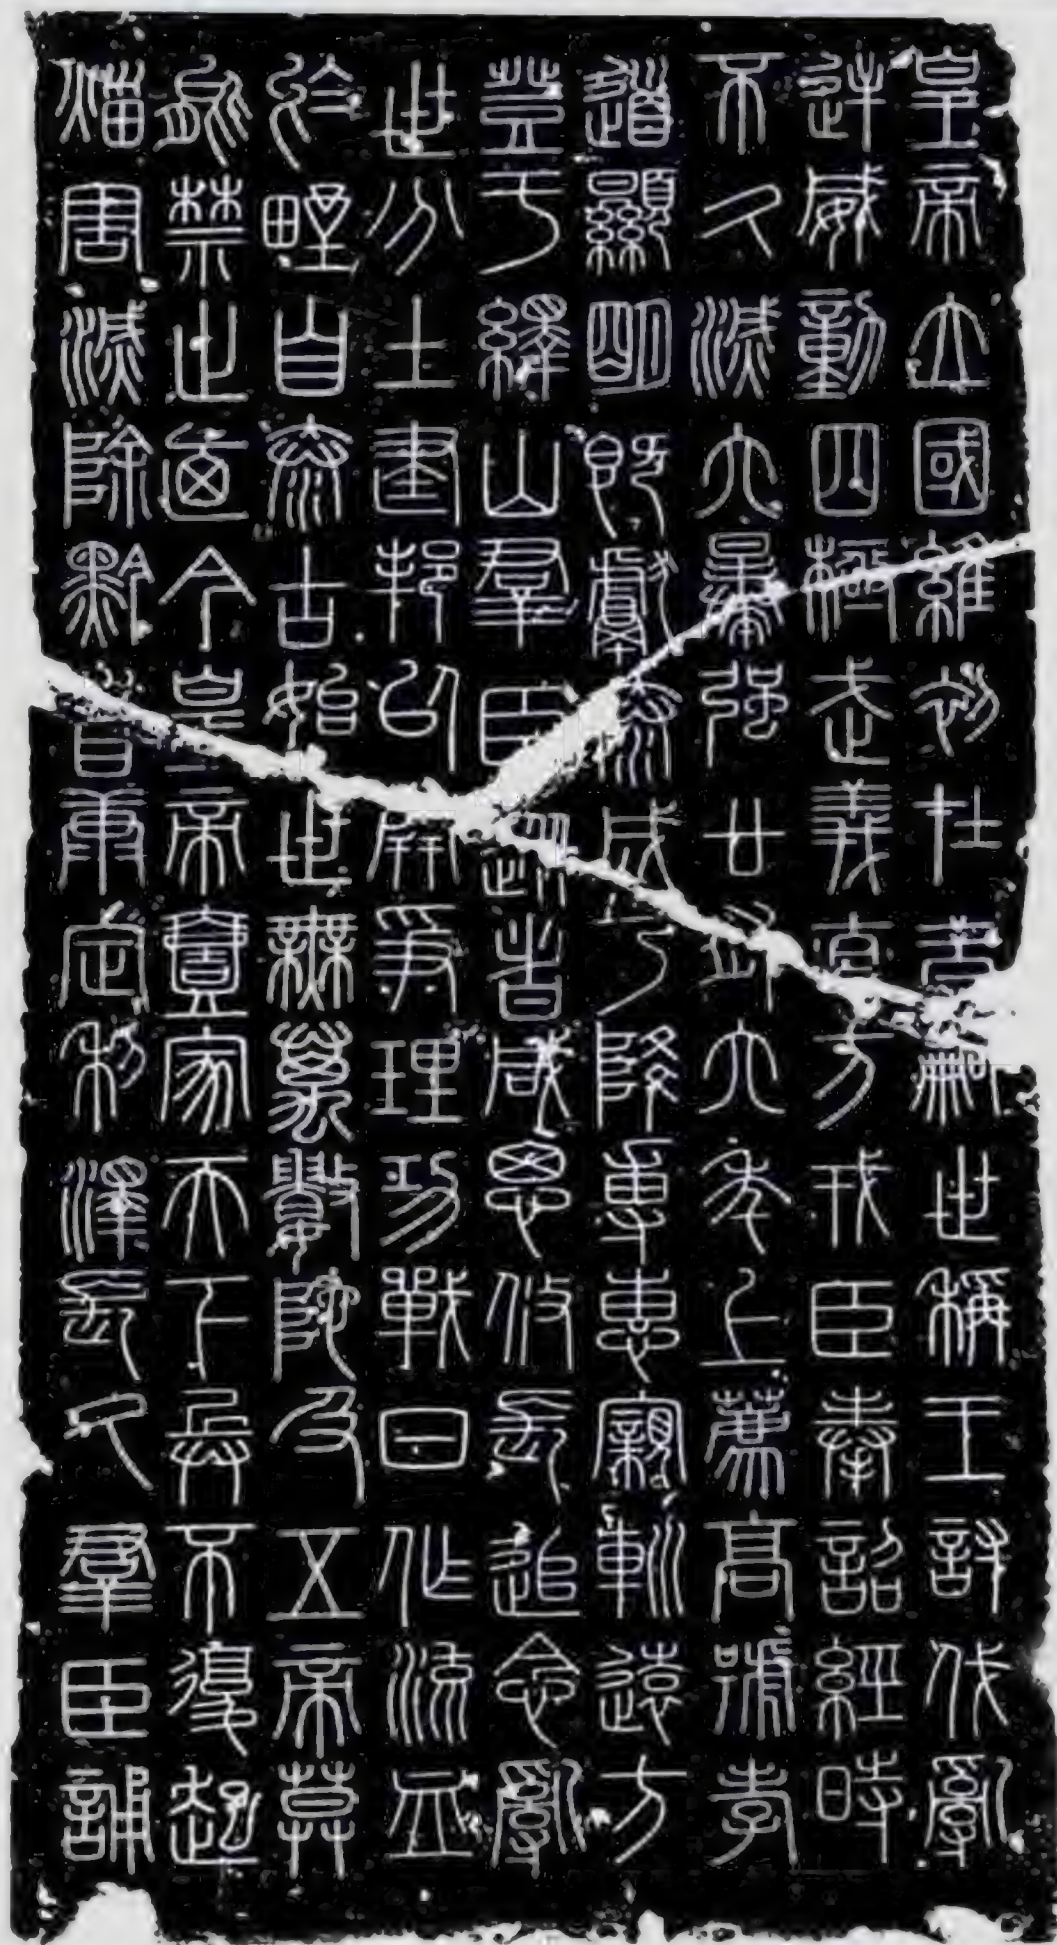 皇帝立國維初在昔嗣世稱王討伐亂
逆威動四極武義直方戎臣奉詔經時
不久滅六暴強廿有六年上薦高號孝
道顯明既獻泰成乃降專惠親巡遠方
登于繹山群臣從者咸思攸長追念亂
世分土建邦以開爭理功戰日作流血
於野自泰古始世無萬數陀及五帝莫
能禁止迺今皇帝壹家天下兵不復起
烖害滅除黔首康定利澤長久群臣誦